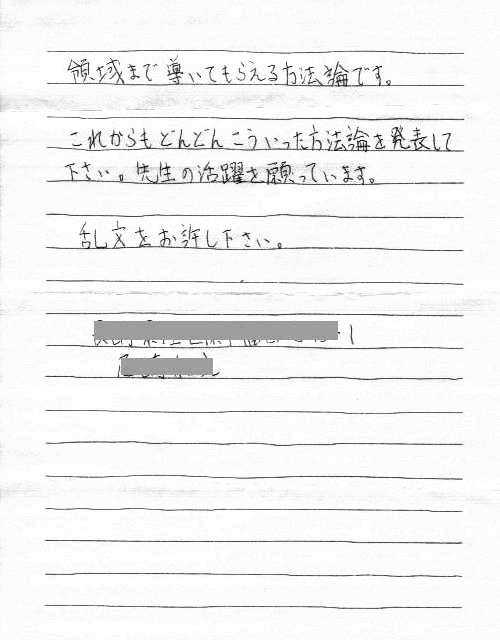 領域まで導いてもらえる方法論です。
これからもどんどんこういった方法論を発表して
下さい。先生の活躍を願っています。
乱文をお許し下さい。